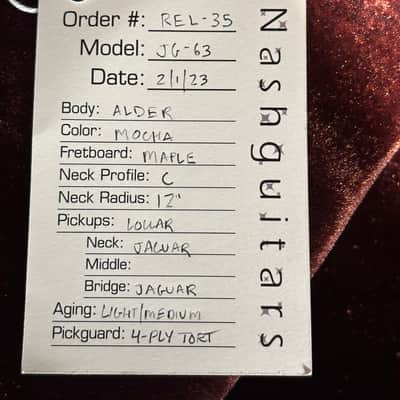 Order #: REL-35
Model: JG-63
Date: 2/1/23
Body: ALDER
Color: MOCHA
Fretboard: MAPLE
Neck Profile: C
Neck Radius: 12"
Pickups: LOLLAR
Neck: JAGUAR
Middle:
Bridge: JAGUAR
Aging: LIGHT/MEDIUM
Pickguard: 4-PLY TORT
Nashguitars